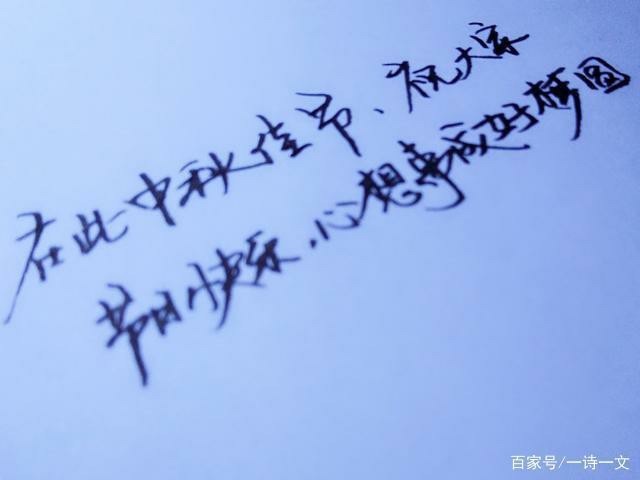 在此中秋佳节、祝大家
节日快乐，心想事成好梦圆
百家号/一诗一文